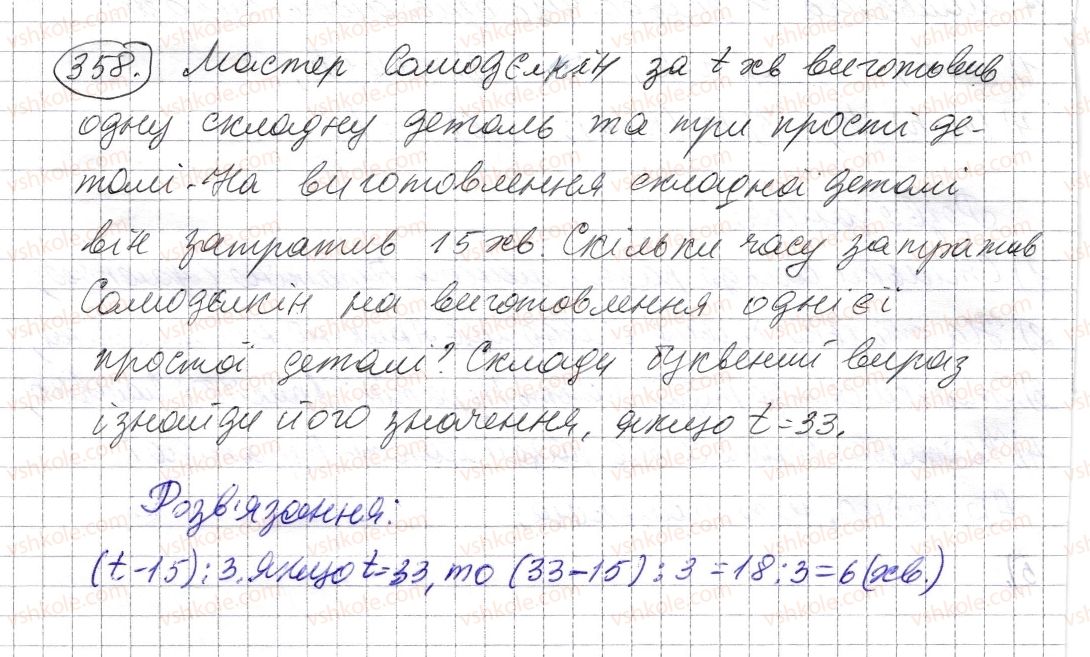 358. Мастер Самодєлкін за t хв виготовив
одну складну деталь та три прості де-
талі. На виготовлення складної деталі
він затратив 15 хв Скільки часу затратив
Самоделкін на виготовлення однієї
простої деталі? Склади буквений вираз
і знайди його значення, якщо t=33.
Розв'язання:
(t-15):3. Якщо t=33, то (33-15):3=18:3=6(хв.)